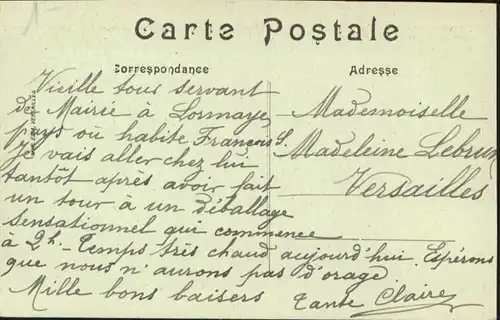 Carte Postale
Correspondance
Adresse
Vieille tour servant
de Mairie à Lormaye,
pays où habite François S.
Je vais aller chez lui
tantôt après avoir fait
un tour à un déballage
sensationnel qui commence
à 2h - Temps très chaud aujourd'hui. Espérons
que nous n'aurons pas d'orage
Mille bons baisers
Tante Claire
Mademoiselle
Madeleine Lebrun
Versailles